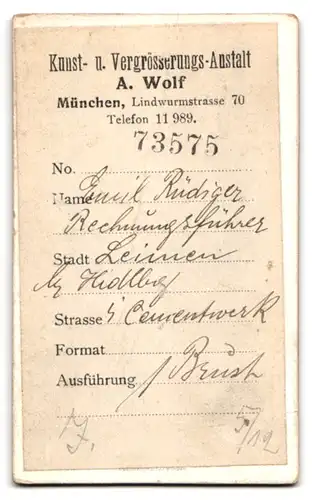 Kunst- u. Vergrösserungs-Anstalt
A. Wolf
München, Lindwurmstrasse 70
Telefon 11 989.
73575
No.
Name Emil Rüdiger
Rechnungsführer
Stadt Leimen
Hdlbg
Strasse Cementwerk
Format
Ausführung Brust
5/12